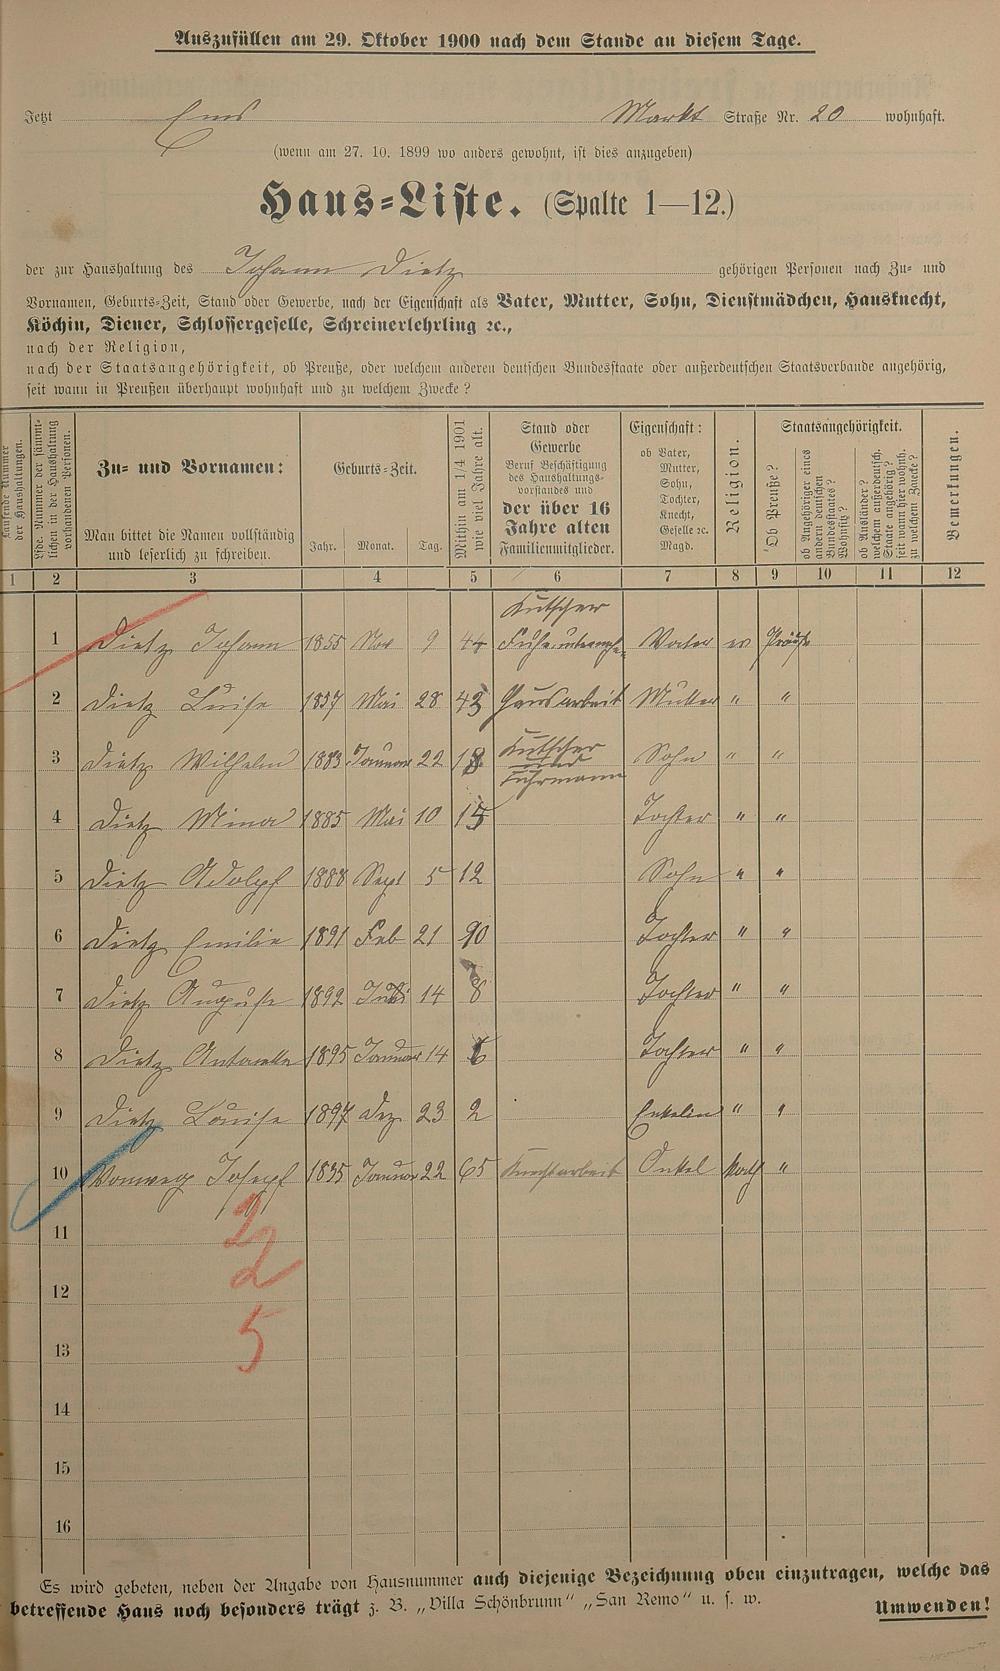 Auszufüllen am 29. Oktober 1900 nach dem Stande an diesem Tage.
Jetzt Ems Markt Straße Nr. 20 wohnhaft.
(wenn am 27. 10. 1899 wo anders gewohnt, ist dies anzugeben)
Haus=Liste. (Spalte 1—12.)
der zur Haushaltung des Johann Dietz gehörigen Personen nach Zu- und
Vornamen, Geburts-Zeit, Stand oder Gewerbe, nach der Eigenschaft als Vater, Mutter, Sohn, Dienstmädchen, Hausknecht,
Köchin, Diener, Schlossergeselle, Schreinerlehrling ꝛc.,
nach der Religion,
nach der Staatsangehörigkeit, ob Preuße, oder welchem anderen deutschen Bundesstaate oder außerdeutschen Staatsverbande angehörig,
seit wann in Preußen überhaupt wohnhaft und zu welchem Zwecke?
Laufende Nummer
der Haushaltungen.
Lfde. Nummer der sämmt-
lichen in der Haushaltung
vorhandenen Personen.
Zu- und Vornamen:
Man bittet die Namen vollständig
und leserlich zu schreiben.
Geburts-Zeit.
Jahr. Monat. Tag.
Mithin am 1/4 1901
wie viel Jahre alt.
Stand oder
Gewerbe
Beruf Beschäftigung
des Haushaltungs-
vorstandes und
der über 16
Jahre alten
Familienmitglieder.
Eigenschaft:
ob Vater,
Mutter,
Sohn,
Tochter,
Knecht,
Geselle ꝛc.
Magd.
Religion.
Staatsangehörigkeit.
Ob Preuße?
ob Angehöriger eines
andern deutschen
Bundesstaates?
Wohnsitz?
ob Ausländer?
welchem außerdeutsch.
Staate angehörig?
seit wann hier wohnh.
zu welchem Zwecke?
Bemerkungen.
1 2 3 4 5 6 7 8 9 10 11 12
Kutscher
1 Dietz Johann 1855 Nov 9 44 Vater ev Präuße
2 Dietz Luise 1857 Mai 28 43 Hausarbeit Mutter " "
3 Dietz Wilhelm 1883 Januar 22 18 Kutscher Sohn " "
und
Fuhrmann
4 Dietz Mina 1885 Mai 10 15 Tochter " "
5 Dietz Adolpf 1888 Sept 5 12 Sohn " "
6 Dietz Emilie 1891 Feb 21 Tochter " "
7 Dietz Auguste 1892 14 8 Tochter " "
8 Dietz 1895 Januar 14 6 Tochter " "
9 Dietz Louise 1897 Dez 23 2 Enkelin " "
10 Josepf 1835 Januar 22 65 Knechtarbeit Onkel "
11
2
2
12
5
13
14
15
16
Es wird gebeten, neben der Angabe von Hausnummer auch diejenige Bezeichnung oben einzutragen, welche das
betreffende Haus noch besonders trägt z. B. „Villa Schönbrunn" „San Remo" u. s. w.
Umwenden!